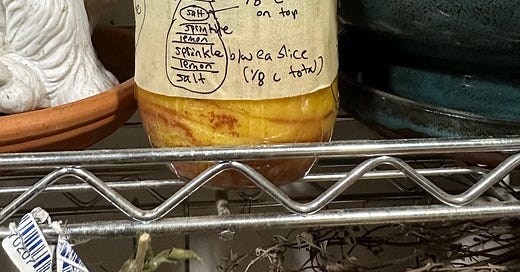 1/8 c
salt on top
sprinkle
lemon
sprinkle b/w ea slice
lemon (1/8 c total)
salt